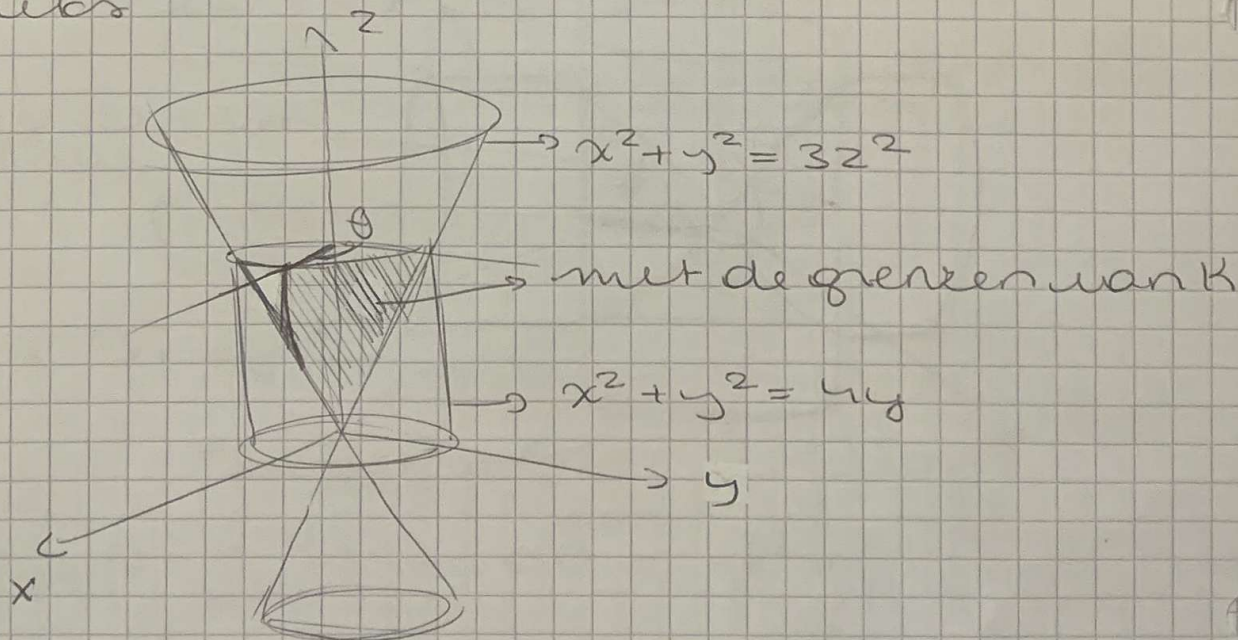 z
x² + y² = 3z²
θ
met de grenzen van K
x² + y² = 4y
y
x